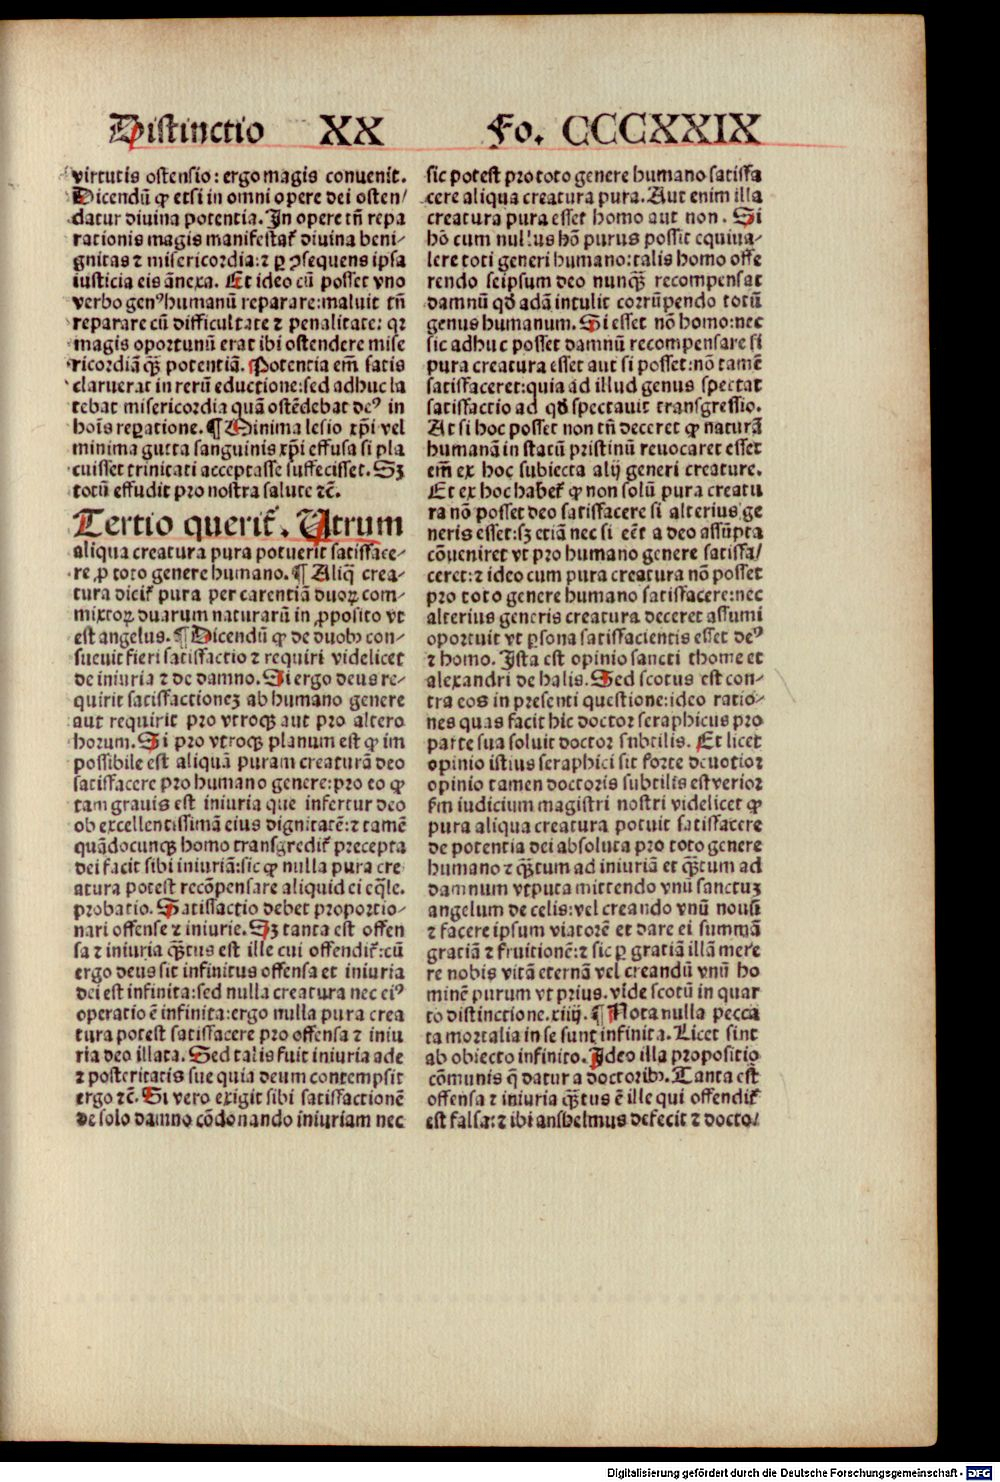 Distinctio XX Fo. CCCXXIX
virtutis ostensio: ergo magis conuenit.
Dicendũ ꝙ etsi in omni opere dei osten/
datur diuina potentia. In opere tñ repa
rationis magis manifestat᷑ diuina beni/
gnitas ⁊ misericordia: ⁊ ꝑ ꝯsequens ipsa
iusticia eis ãnexa. Et ideo cũ posset vno
verbo genꝰ humanũ reparare: maluit tñ
reparare cũ difficultate ⁊ penalitate: qꝛ
magis oportunũ erat ibi ostendere mise
ricordiã qꝫ̃ potentiã. Potentia em̃ satis
claruerat in rerũ eductione: sed adhuc la
tebat misericordia quã ostẽdebat deꝰ in
hoĩs reꝑatione. ¶ Minima lesio xp̃i vel
minima gutta sanguinis xp̃i effusa si pla
cuisset trinitati acceptasse suffecisset. Sꝫ
totũ effudit pro nostra salute ⁊c̃.
Tertio querit᷑. Utrum
aliqua creatura pura potuerit satisface/
re ꝓ toto genere humano. ¶ Aliq̃ crea/
tura dicit᷑ pura per carentiã duoꝝ com/
mixtoꝝ duarum naturarũ in ꝓposito vt
est angelus. ¶ Dicendũ ꝙ de duobꝫ con/
sueuit fieri satisfactio ⁊ requiri videlicet
de iniuria ⁊ de damno. Si ergo deus re/
quirit satisfactioneꝫ ab humano genere
aut requirit pro vtroqꝫ aut pro altero
horum. Si pro vtroqꝫ planum est ꝙ im
possibile est aliquã puram creaturã deo
satisfacere pro humano genere: pro eo ꝙ
tam grauis est iniuria que infertur deo
ob excellentissimã eius dignitatẽ: ⁊ tamẽ
quãdocunqꝫ homo transgredit᷑ precepta
dei facit sibi iniuriã: sic ꝙ nulla pura cre
atura potest recõpensare aliquid ei eq̃le.
probatio. Satisfactio debet proportio/
nari offense ⁊ iniurie. Sꝫ tanta est offen
sa ⁊ iniuria qꝫ̃tus est ille cui offendit᷑: cũ
ergo deus sit infinitus offensa et iniuria
dei est infinita: sed nulla creatura nec eiꝰ
operatio ẽ infinita: ergo nulla pura crea
tura potest satisfacere pro offensa ⁊ iniu
ria deo illata. Sed talis fuit iniuria ade
⁊ posteritatis sue quia deum contempsit
ergo ⁊c̃. Si vero exigit sibi satisfactionẽ
de solo damno cõdonando iniuriam nec
sic potest pro toto genere humano satisfa
cere aliqua creatura pura. Aut enim illa
creatura pura esset homo aut non. Si
hõ cum nullus hõ purus possit equiua/
lere toti generi humano: talis homo offe
rendo seipsum deo nunqꝫ̃ recompensat
damnũ qď adã intulit corrũpendo totũ
genus humanum. Si esset nõ homo: nec
sic adhuc posset damnũ recompensare si
pura creatura esset aut si posset: nõ tamẽ
satisfaceret: quia ad illud genus spectat
satisfactio ad qď spectauit transgressio.
At si hoc posset non tñ deceret ꝙ naturã
humanã in statũ pristinũ reuocaret esset
em̃ ex hoc subiecta alij generi creature.
Et ex hoc habet᷑ ꝙ non solũ pura creatu
ra nõ posset deo satisfacere si alterius ge
neris esset: sꝫ etiã nec si eẽt a deo assũpta
cõueniret vt pro humano genere satisfa/
ceret: ⁊ ideo cum pura creatura nõ posset
pro toto genere humano satisfacere: nec
alterius generis creatura deceret assumi
oportuit vt ꝑsona satisfacientis esset deꝰ
⁊ homo. Ista est opinio sancti thome et
alexandri de halis. Sed scotus est con/
tra eos in presenti questione: ideo ratio/
nes quas facit hic doctor seraphicus pro
parte sua soluit doctor subtilis. Et licet
opinio istius seraphici sit forte deuotior
opinio tamen doctoris subtilis est verior
ẜm iudicium magistri nostri videlicet ꝙ
pura aliqua creatura potuit satisfacere
de potentia dei absoluta pro toto genere
humano ⁊ qꝫ̃tum ad iniuriã et qꝫ̃tum ad
damnum vtputa mittendo vnũ sanctuꝫ
angelum de celis: vel creando vnũ nouũ
⁊ facere ipsum viatorẽ et dare ei summã
gratiã ⁊ fruitionẽ: ⁊ sic ꝑ gratiã illã mere
re nobis vitã eternã vel creandũ vnũ ho
minẽ purum vt prius. vide scotũ in quar
to distinctione. xiiij. ¶ Nota nulla pecca
ta mortalia in se sunt infinita. Licet sint
ab obiecto infinito. Ideo illa propositio
cõmunis q̃ datur a doctoribꝫ. Tanta est
offensa ⁊ iniuria qꝫ̃tus ẽ ille qui offendit᷑
est falsa: ⁊ ibi anshelmus defecit ⁊ docto/
Digitalisierung gefördert durch die Deutsche Forschungsgemeinschaft - DFG